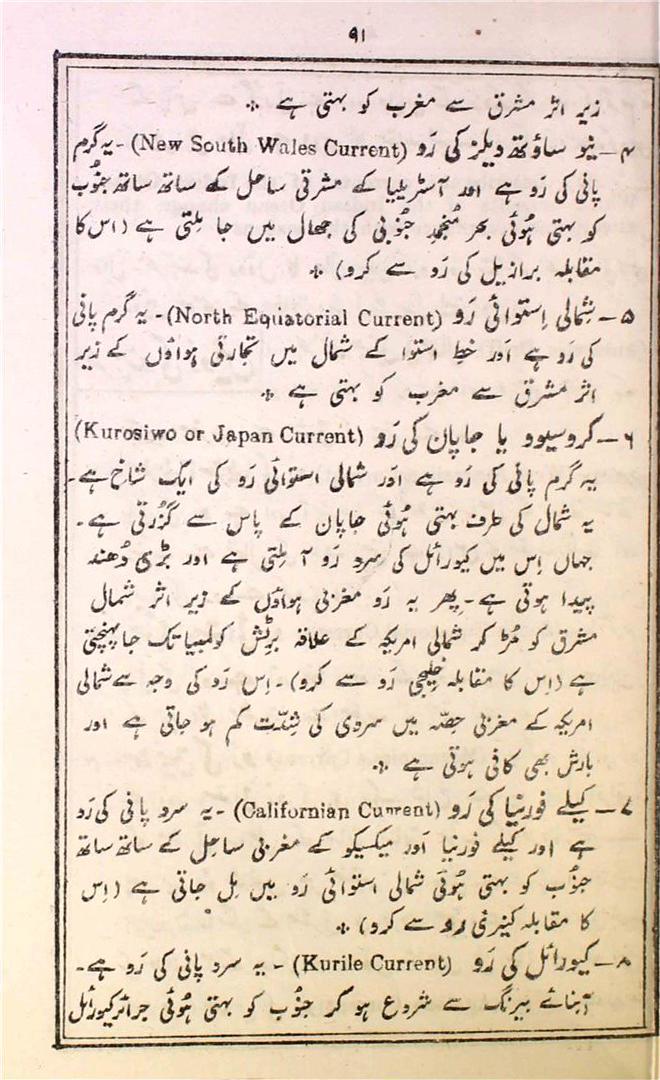 ۹۱
زیر اثر مشرق سے مغرب کو بہتی ہے ٭
۴ ـ نیو ساؤتھ ویلز کی رَو (New South Wales Current) ـ یہ گرم
پانی کی رَو ہے اور آسٹریلیا کے مشرقی ساحل کے ساتھ ساتھ جنُوب
کو بہتی ہُوئی بحر مُنجمد جنُوبی کی جھال میں جا مِلتی ہے (اس کا
مقابلہ برازیل کی رَو سے کرو) ٭
۵ ـ شِمالی اِستوائی رَو (North Equatorial Current) ـ یہ گرم پانی
کی رَو ہے اَور خطِ استوا کے شمال میں تجارتی ہواؤں کے زیر
اثر مشرق سے مغرب کو بہتی ہے ٭
۶ ـ کروسیوو یا جاپان کی رَو (Kurosiwo or Japan Current)
یہ گرم پانی کی رَو ہے اَور شمالی استوائی رَو کی ایک شاخ ہے۔
یہ شمال کی طرف بہتی ہُوئی جاپان کے پاس سے گزُرتی ہے۔
جہاں اِس میں کیورائل کی سرد رَو آ مِلتی ہے اور بڑی دُھند
پیدا ہوتی ہے۔ پھر یہ رَو مغربی ہواؤں کے زیر اثر شمال
مشرق کو مُڑ کر شمالی امریکہ کے علاقہ برٹش کولمبیا تک جا پہنچتی
ہے (اِس کا مقابلہ خلیجی رَو سے کرو)۔ اِس رَو کی وجہ سے شمالی
امریکہ کے مغربی حصّہ میں سردی کی شِدّت کم ہو جاتی ہے اور
بارش بھی کافی ہوتی ہے ٭
۷ ـ کیلے فورنیا کی رَو (Californian Current) ـ یہ سرد پانی کی رَو
ہے اور کیلے فورنیا اَور میکسیکو کے مغربی ساحِل کے ساتھ ساتھ
جنُوب کو بہتی ہُوئی شمالی استوائی رَو میں مِل جاتی ہے (اِس
کا مقابلہ کنیری رَو سے کرو) ٭
۸ ـ کیورائل کی رَو (Kurile Current) ـ یہ سرد پانی کی رَو ہے۔
آبنائے بیرنگ سے شروع ہو کر جنُوب کو بہتی ہُوئی جزائر کیورائل